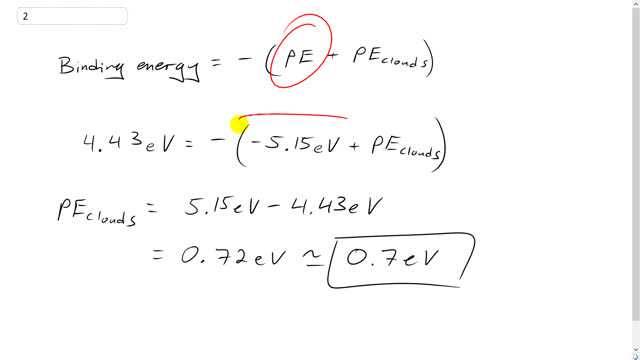 2
Binding energy = - (PE + PE clouds)
4.43 eV = - (-5.15 eV + PE clouds)
PE clouds = 5.15 eV - 4.43 eV
= 0.72 eV ≃ 0.7 eV